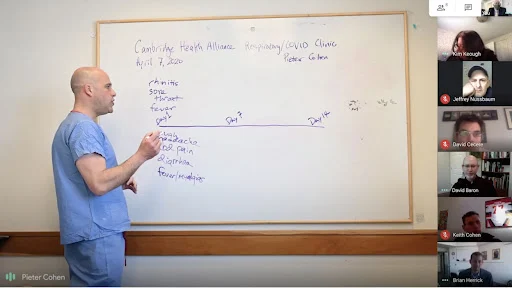 Cambridge Health Alliance Respiratory/COVID Clinic
April 7, 2020
Pieter Cohen
rhinitis
sore
throat
fever
Day 7
Day 14
headache
pain
diarrhea
Pieter Cohen
Kim Keough
Jeffrey Nussbaum
David Cecere
David Baron
Keith Cohen
Brian Herrick